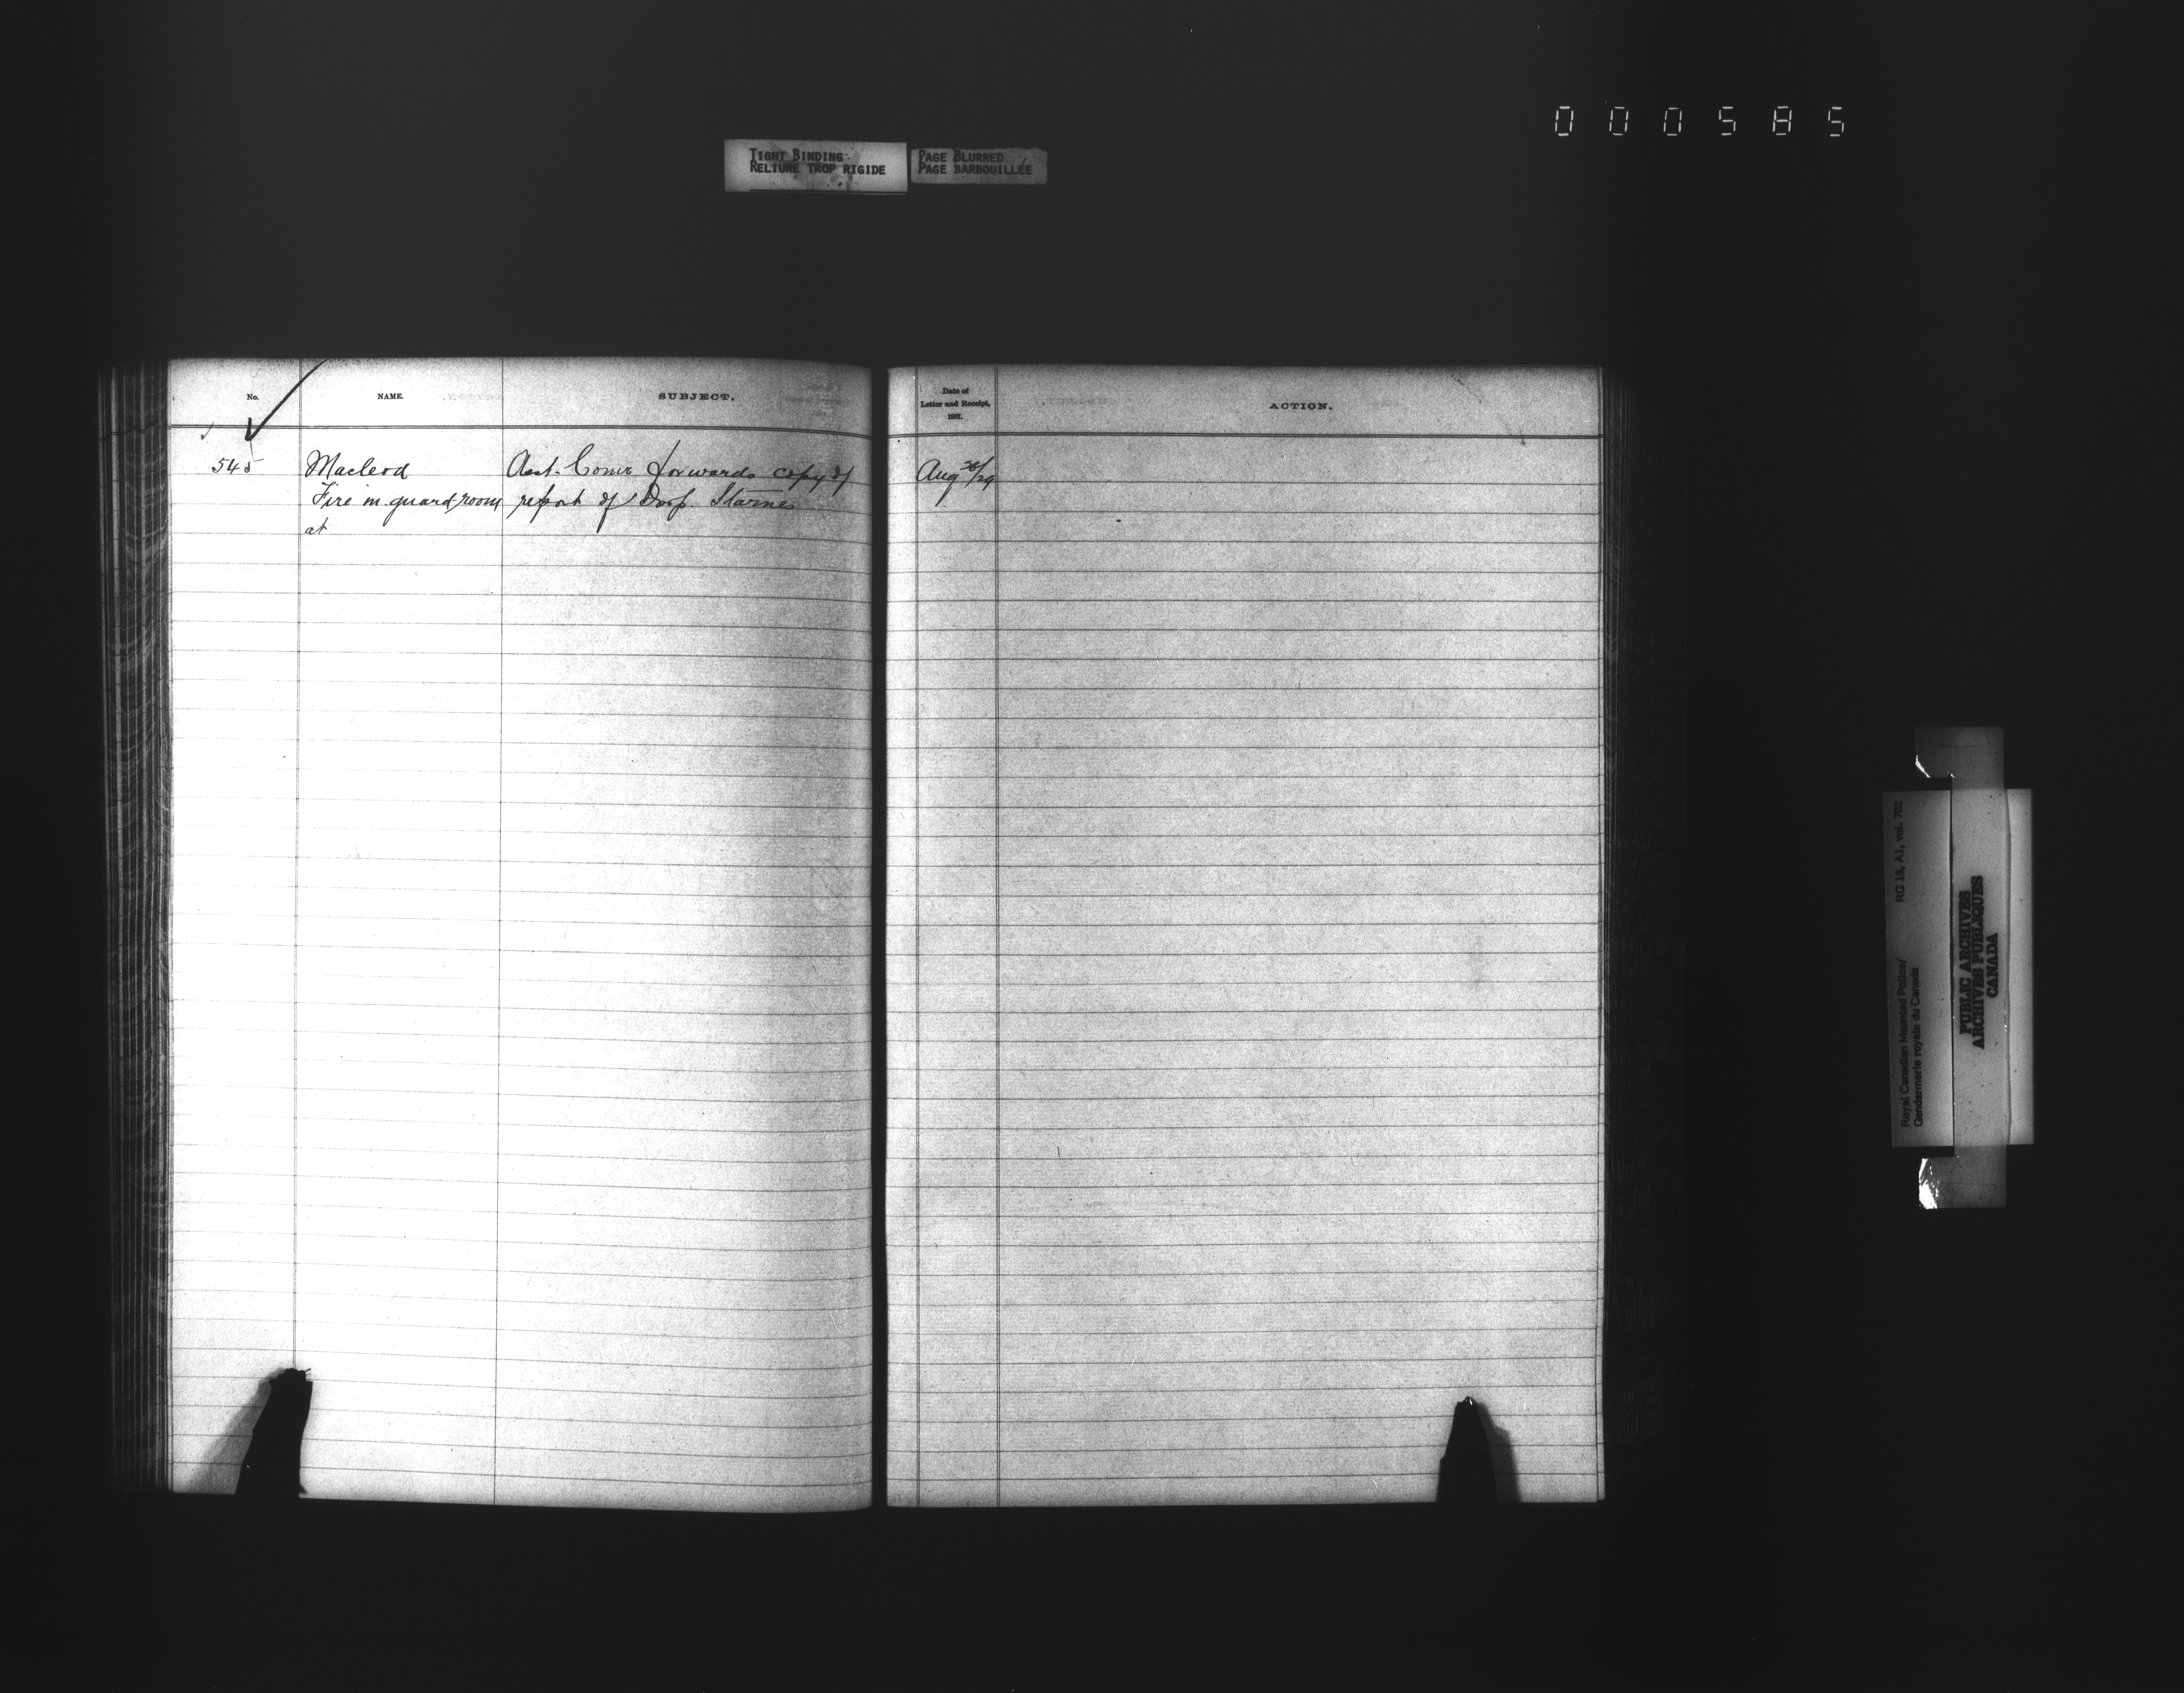 000585
TIGHT BINDING
RELIURE TROP RIGIDE
PAGE BLURRED
PAGE BARBOUILLÉE
No.
NAME.
SUBJECT.
Date of
Letter and Receipt,
1907.
ACTION.
545
Macleod
Fire in guard room
at
Asst. Comr forwards copy of
report of Insp. Starnes
Aug 26/29
Royal Canadian Mounted Police/ RG 18, A1, vol. 702
Gendarmerie royale du Canada
PUBLIC ARCHIVES
ARCHIVES PUBLIQUES
CANADA